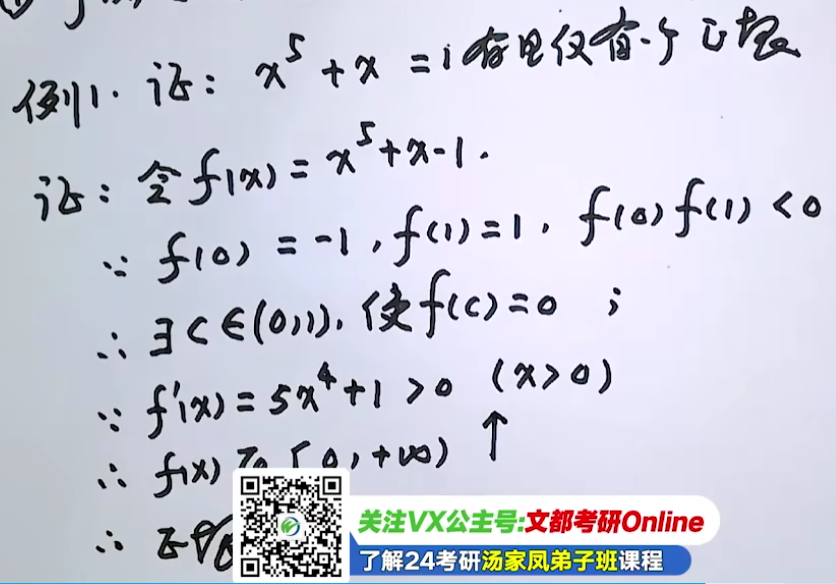 例1. 证: x⁵ + x = 1 存且仅有一个正根
证: 令 f(x) = x⁵ + x - 1.
∵ f(0) = -1, f(1) = 1, f(0) f(1) < 0
∴ ∃ c ∈ (0,1), 使 f(c) = 0 ;
∵ f'(x) = 5x⁴ + 1 > 0 (x > 0)
∴ f(x) 在 [0, +∞) ↑
∴
关注VX公主号:文都考研Online
了解24考研汤家凤弟子班课程